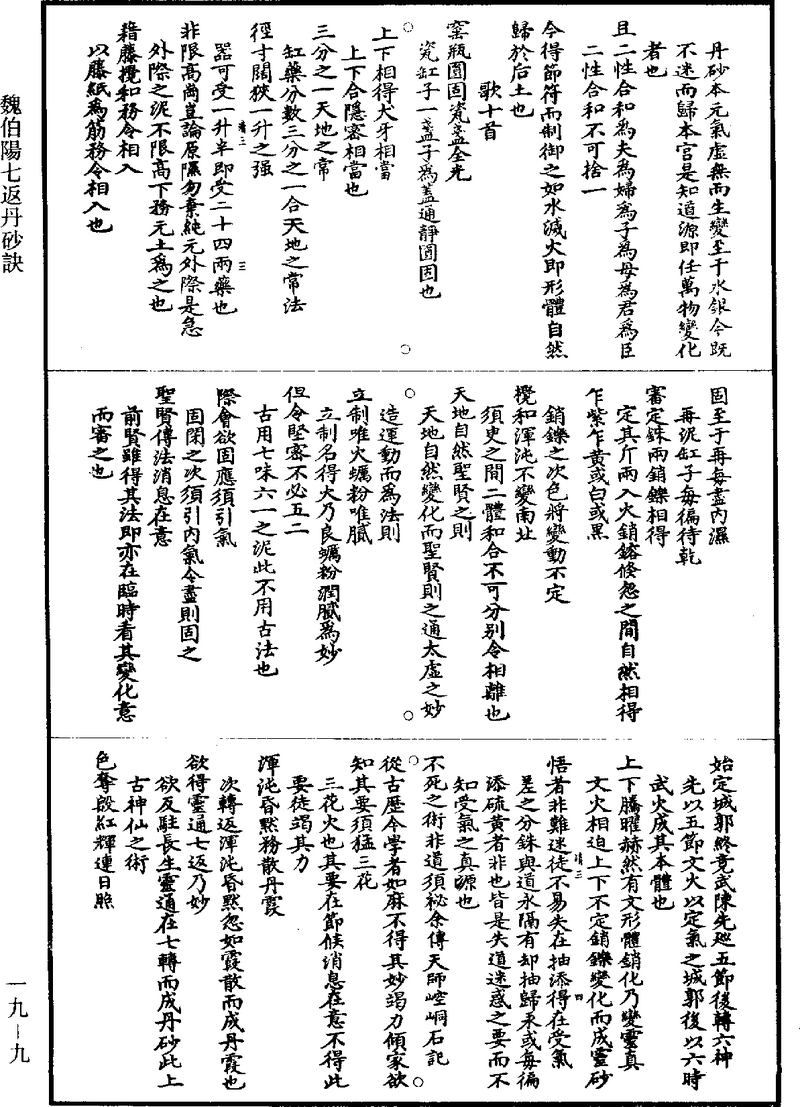 魏伯陽七返丹砂訣
丹砂本元氣虛無而生變至于水銀今既
不迷而歸本宮是知道源即任萬物變化
者也
且二性合和為夫為婦為子為母為君為臣
二性合和不可捨一
今得節符而制御之如水滅火即形體自然
歸於后土也
歌十首
窯瓶圓固瓷盞全光
瓷缸子一盞子為蓋通靜圓固也
上下相得犬牙相當
上下合隱密相當也
三分之一天地之常
缸藥分數三分之一合天地之常法
徑寸闊狹一升之强
器可受一升半即受二十四兩藥也
非限高崗豈論原隰勿棄純元外際是急
外際之泥不限高下務元土為之也
籍藤攪和務令相入
以藤紙為筋務令相入也
固至于再每盡內濕
再泥缸子每徧待乾
審定銖兩銷鑠相得
定其斤兩入火銷鎔倏忽之間自然相得
乍紫乍黄或白或黑
銷鑠之次色將變動不定
攪和渾沌不變南址
須臾之間二體和合不可分别令相離也
天地自然聖賢之則
天地自然變化而聖賢則之通太虛之妙
造運動而為法則
立制唯火蠣粉唯膩
立制名得火乃良蠣粉潤膩為妙
但令堅密不必五二
古用七味六一之泥此不用古法也
際會欲固應須引氣
固閉之次須引內氣令盡則固之
聖賢傳法消息在意
前賢雖得其法即亦在臨時看其變化意
而審之也
始定城郭終竟武陳先巡五節後轉六神
先以五節文火以定氣之城郭後以六時
武火成其本體也
上下騰曜赫然有文形體銷化乃變靈真
文火相迫上下不定銷鑠變化而成靈砂
悟者非難迷徒不易失在抽添得在受氣
差之分銖與道永隔有却抽歸汞或每徧
添硫黄者非也皆是失道迷惑之要而不
知受氣之真源也
不死之術非道須祕余傳天師崆峒石記
從古歷今學者如麻不得其妙竭力傾家欲
知其要須猛三花
三花火也其要在節候消息在意不得此
要徒竭其力
渾沌昏黙務散丹霞
次轉返渾沌昏黙忽如霞散而成丹霞也
欲得靈通七返乃妙
欲反駐長生靈通在七轉而成丹砂此上
古神仙之術
色奪殷紅輝連日照
一九－九